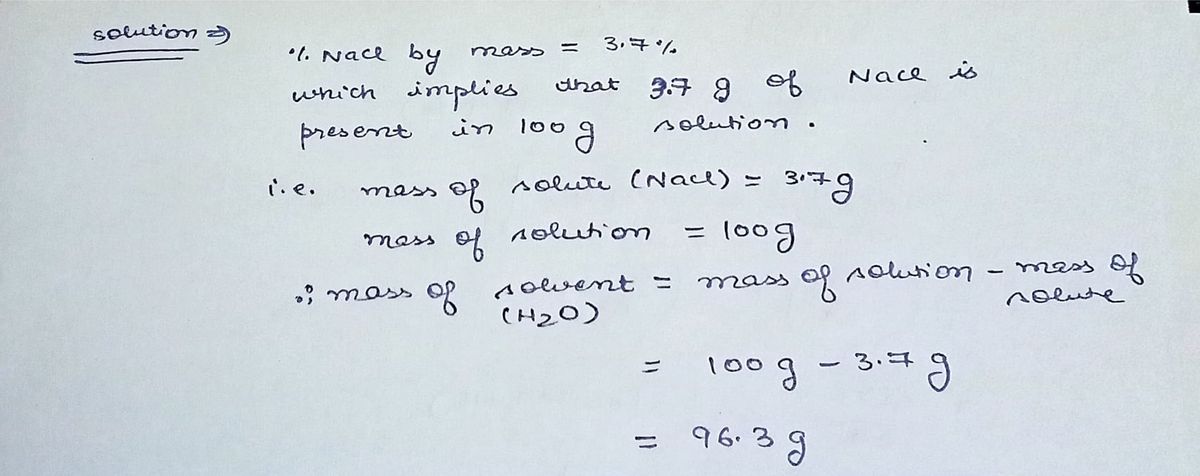 solution ⇒
% NaCl by mass = 3.7 %
which implies that 3.7 g of NaCl is
present in 100 g solution .
i.e. mass of solute (NaCl) = 3.7g
mass of solution = 100g
∴ mass of solvent = mass of solution - mass of
(H2O) solute
= 100 g - 3.7 g
= 96.3 g